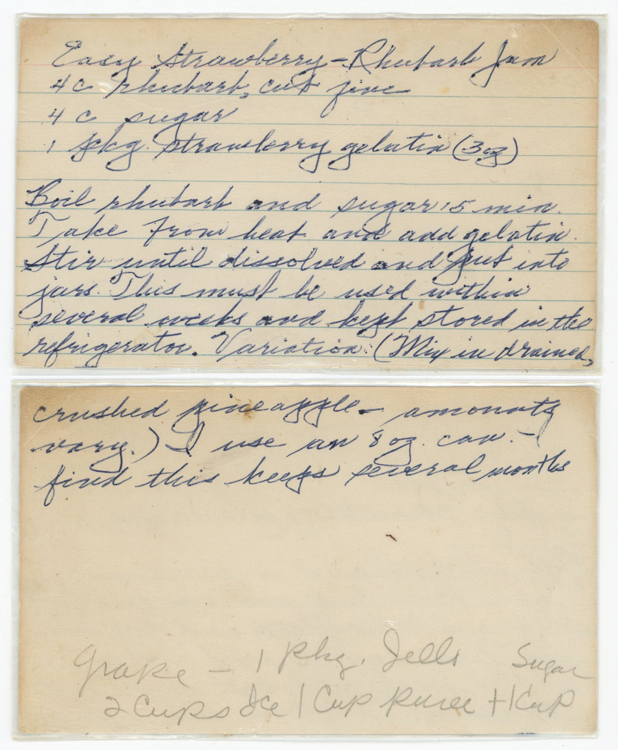 Easy Strawberry-Rhubarb Jam
4 c rhubarb, cut fine
4 c sugar
1 pkg. strawberry gelatin (3oz)
Boil rhubarb and sugar 15 min.
Take from heat and add gelatin.
Stir until dissolved and put into
jars. This must be used within
several weeks and kept stored in the
refrigerator. Variation: (Mix in drained,
crushed pineapple - amounts
vary.) I use an 8 oz. can. - I
find this keeps several months
grape - 1 pkg. Jello Sugar
2 Cups Ice 1 Cup + 1 Cup